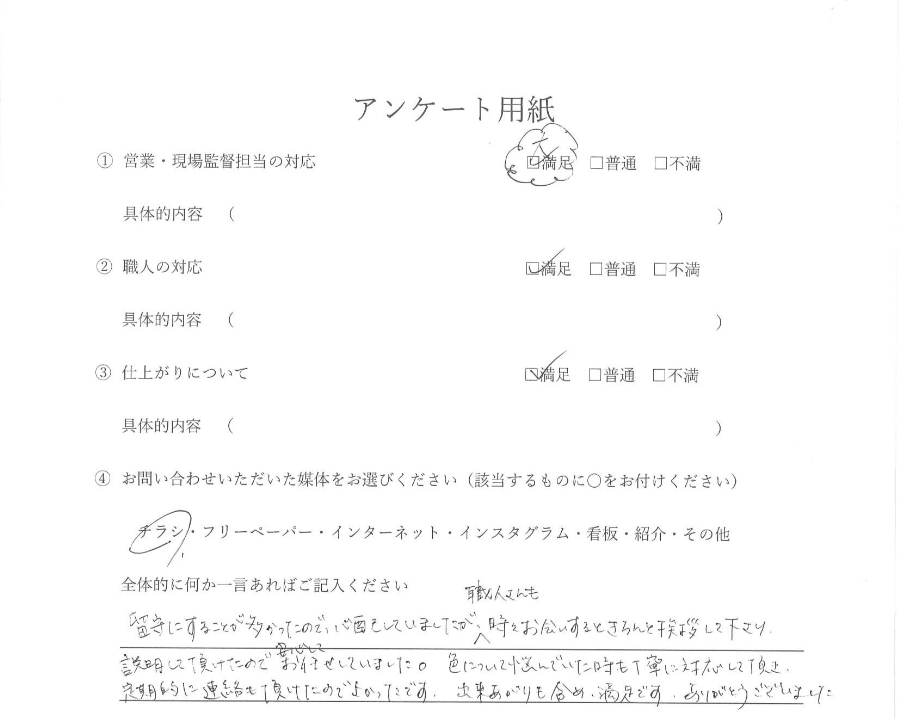 アンケート用紙
① 営業・現場監督担当の対応 大 □満足 □普通 □不満
具体的内容 ( )
② 職人の対応 ☑満足 □普通 □不満
具体的内容 ( )
③ 仕上がりについて ☑満足 □普通 □不満
具体的内容 ( )
④ お問い合わせいただいた媒体をお選びください(該当するものに○をお付けください)
チラシ・フリーペーパー・インターネット・インスタグラム・看板・紹介・その他
全体的に何か一言あればご記入ください
職人さんも
留守にすることが多かったので、心配していましたが、時々お会いするときちんと挨拶して下さり、
安心して
説明して頂けたのでお任せしていました。色について悩んでいた時も丁寧に対応して頂き、
定期的に連絡も頂けたのでよかったです。出来あがりも含め、満足です。ありがとうございました